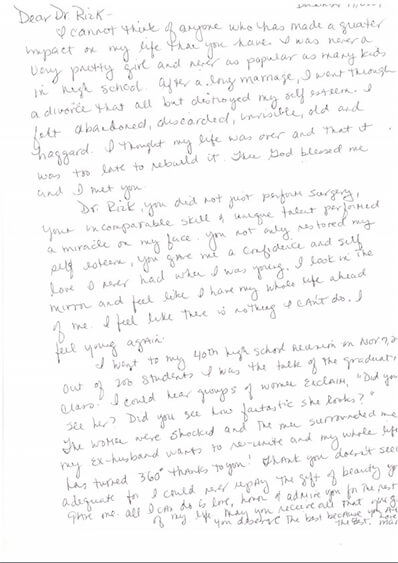 Dear Dr Rizk-
I cannot think of anyone who has made a greater
impact on my life than you have. I was never a
very pretty girl and never as popular as many kids
in high school. After a long marriage, I went through
a divorce that all but distroyed my self esteem. I
felt abandoned, discarded, invisible, old and
haggard. I thought my life was over and that it
was too late to rebuild it. Then God blessed me
and I met you.
Dr. Rizk, you did not just perform surgery,
your incomparable skill & unique talent performed
a miracle on my face. You not only restored my
self esteem, you gave me a confidence and self
love I never had when I was young. I look in the
mirror and feel like I have my whole life ahead
of me. I feel like there is nothing I CAN'T do. I
feel young again.
I went to my 40th high school reunion on Nov 7, 2
Out of 200 students I was the talk of the graduati
class. I could hear groups of women exclaim, "Did you
see her? Did you see how fantastic she looks?"
The women were shocked and the men surrounded me
my ex-husband wants to re-unite and my whole life
has turned 360° thanks to you! Thank you doesn't see
adequate for I could never repay the gift of beauty you
gave me. All I can do is love, honor & admire you for the rest
of my life. May you receive all that you
you deserve the best because you are
the best.